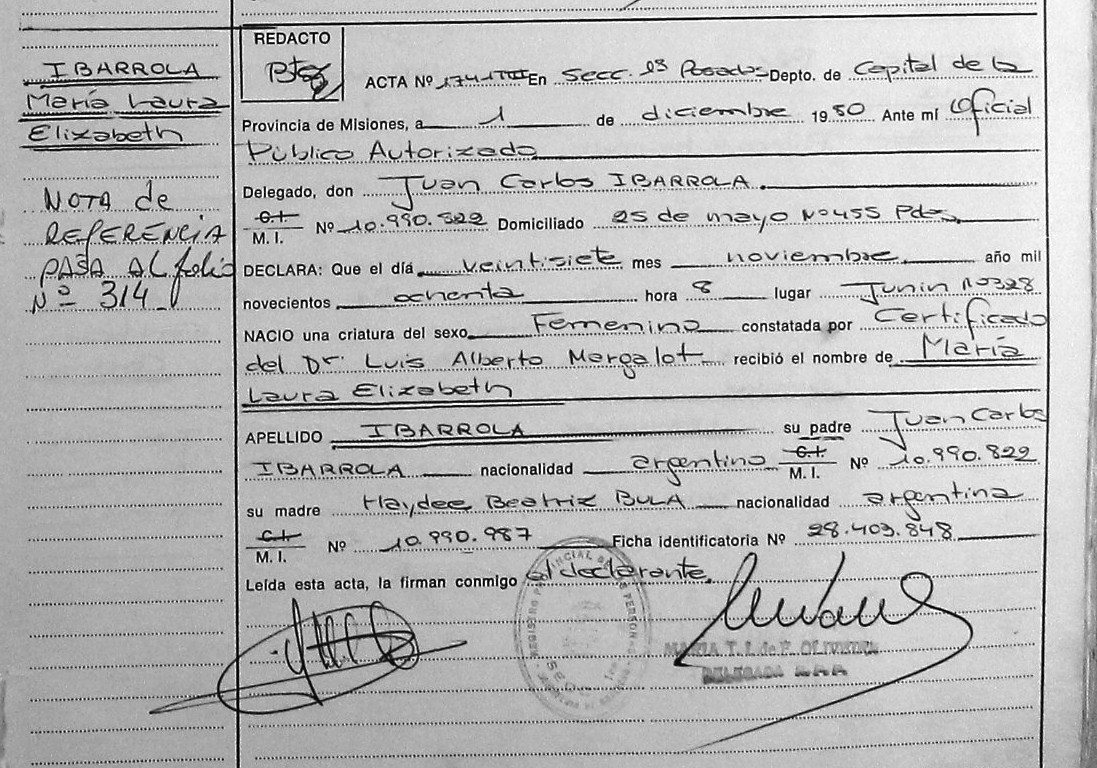 IBARROLA
María Laura
Elizabeth
NOTA de
REFERENCIA
PASA AL folio
Nº 314
REDACTO
ACTA Nº 1741 TIII En Secc. 1ª Posadas Depto. de Capital de la
Provincia de Misiones, a 1 de diciembre 1980 Ante mí Oficial
Público Autorizado
Delegado, don Juan Carlos IBARROLA.
C.I.
M. I. Nº 10.990.822 Domiciliado 25 de mayo Nº 455 Pdas.
DECLARA: Que el día veintisiete mes noviembre año mil
novecientos ochenta hora 8 lugar Junín Nº 328
NACIO una criatura del sexo Femenino constatada por Certificado
del Dr. Luis Alberto Margalot recibió el nombre de María
Laura Elizabeth
APELLIDO IBARROLA su padre Juan Carlos
IBARROLA nacionalidad argentino C.I. M. I. Nº 10.990.822
su madre Haydee Beatriz BULA nacionalidad argentina
C.I.
M. I. Nº 10.990.987 Ficha identificatoria Nº 28.403.848
Leída esta acta, la firman conmigo el declarante.
MARIA T. I. de F. OLIVEIRA
DELEGADA